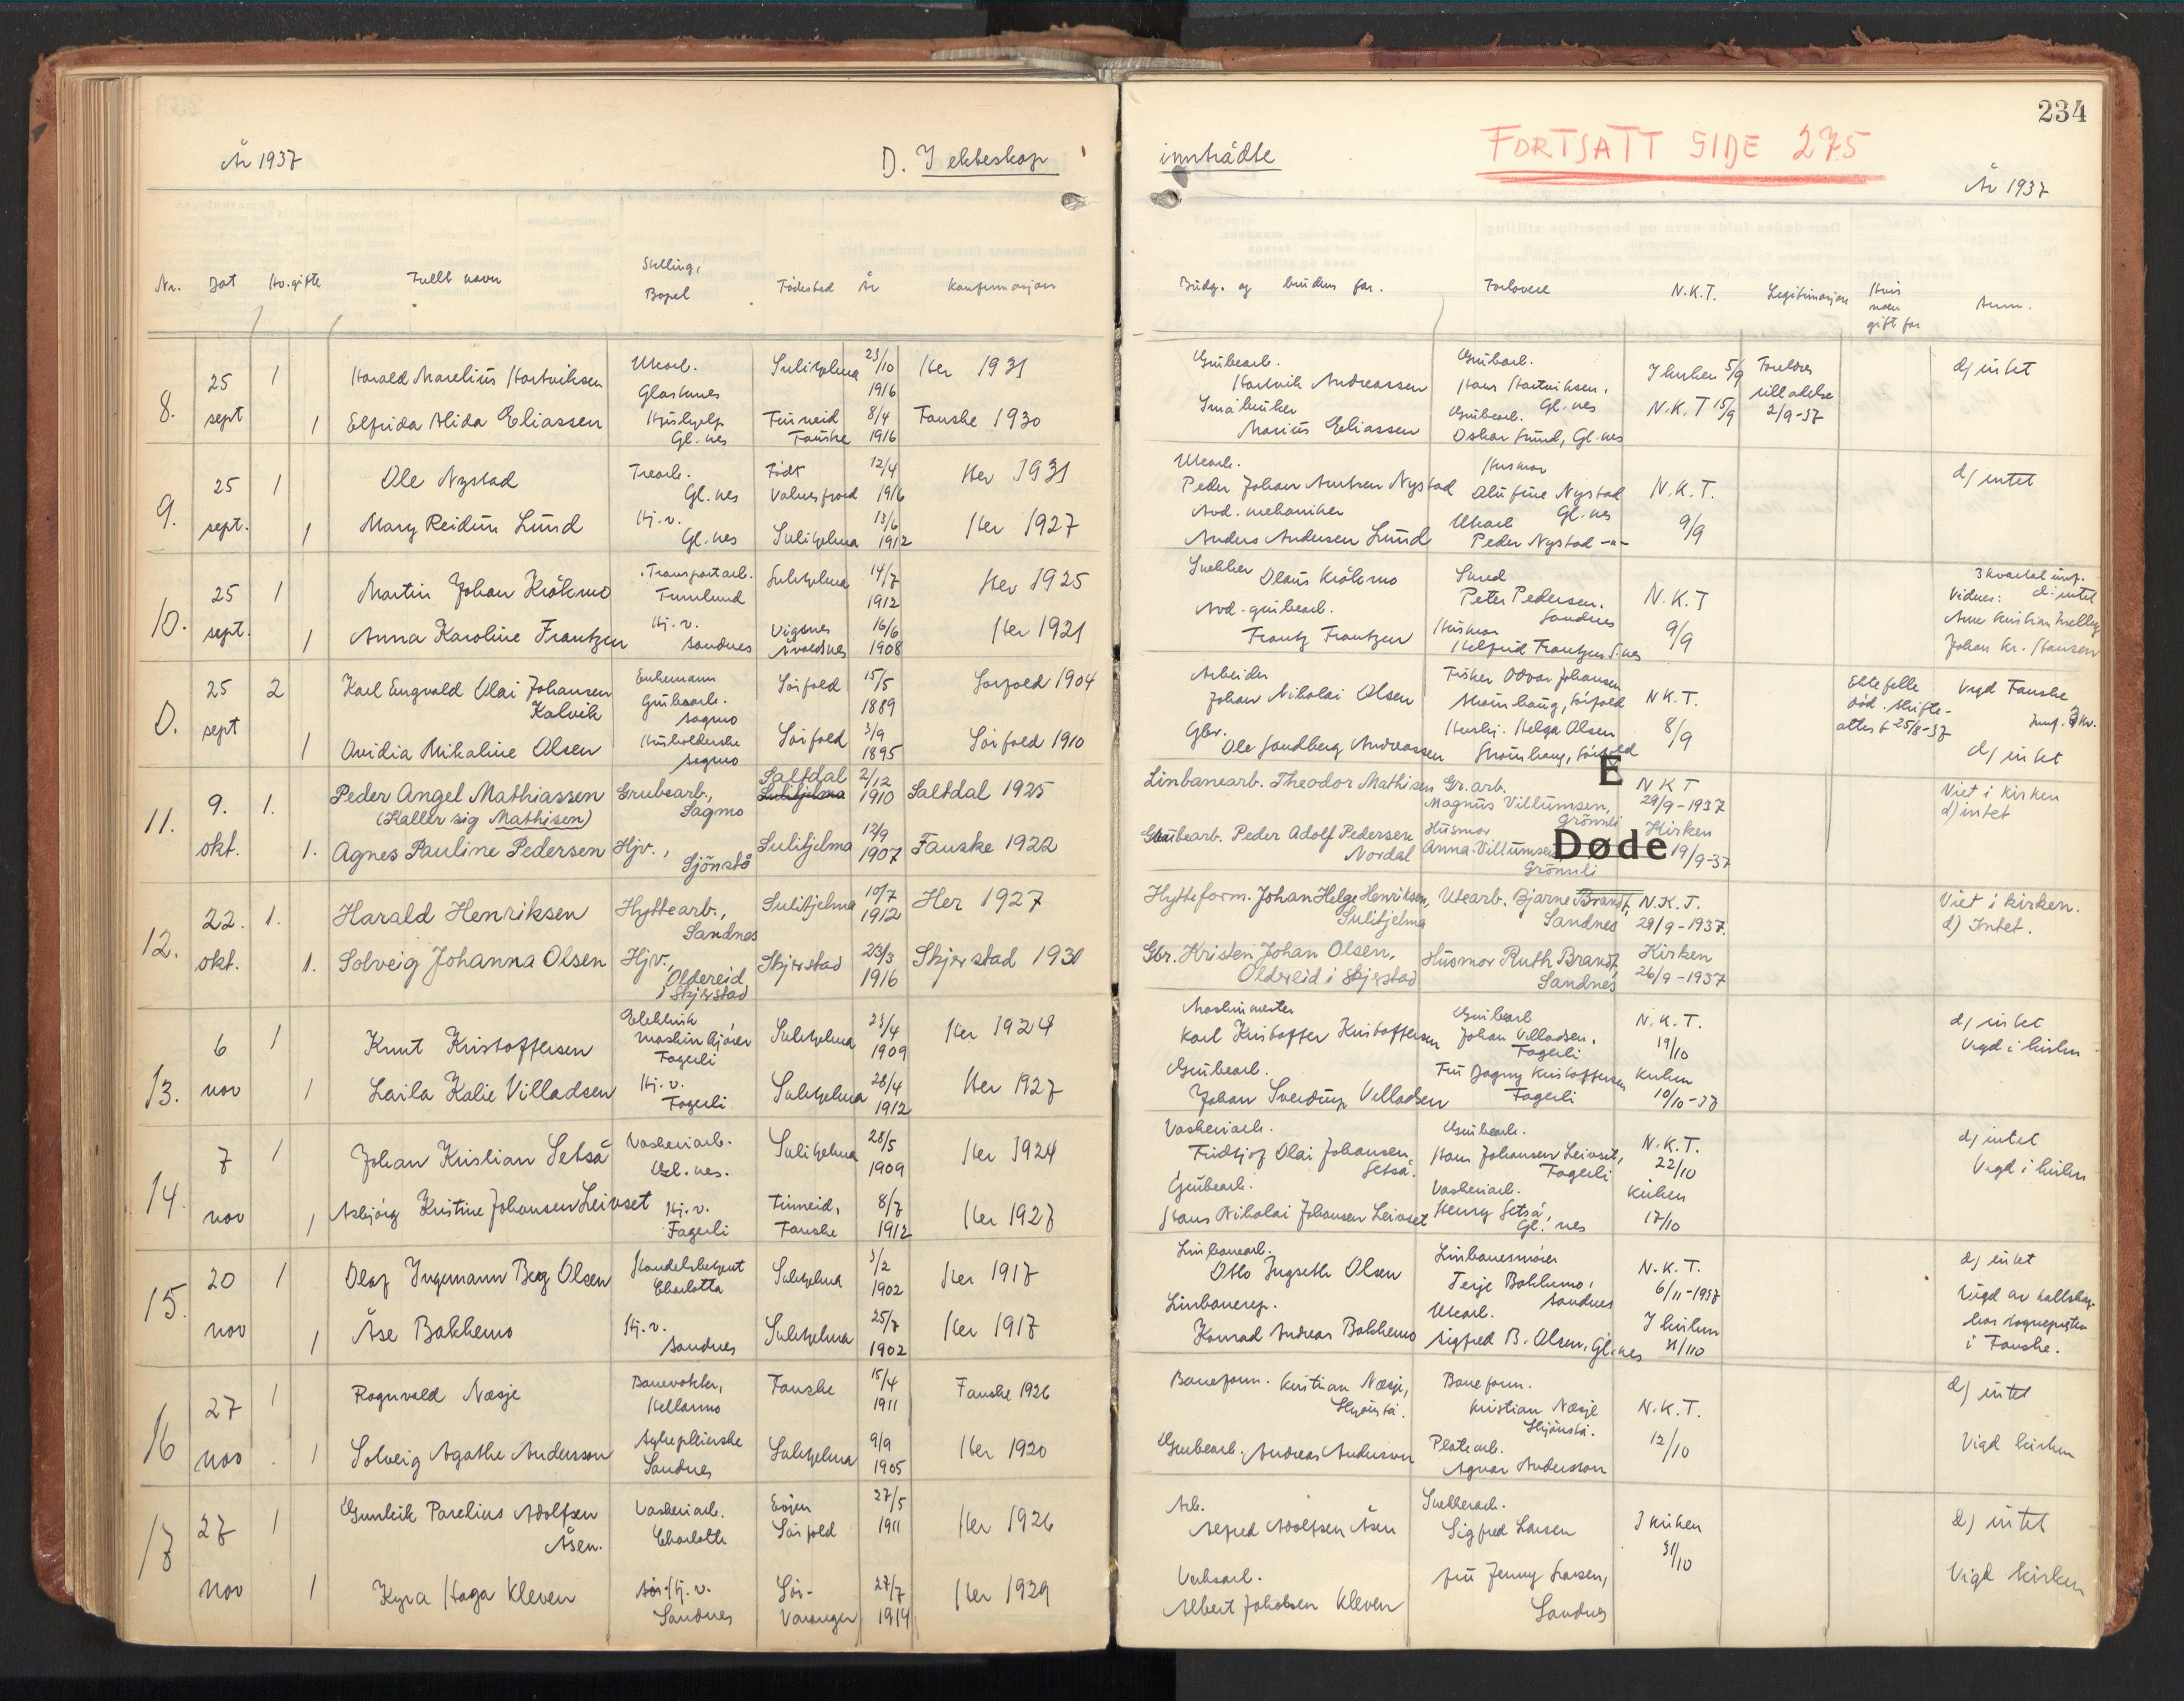 234
År 1937
D. I ekteskap
inntrådte
FORTSATT SIDE 275
År 1937
Nr. Dat Hv. gifte Fullt navn Stilling, Bopel Fødested År Konfirmasjon
Brudg. og brudens far. Forlovere N.K.T. Legitimasjon Hvis noen gift før Anm.
8. 25 sept 1 Harald Marelius Hartviksen Utearb. Glastunes Sulitjelma 23/10 1916 Her 1931
Grubearb. Hartvik Andreassen Grubearb. Hans Hartviksen, Gl.nes I kirken 5/9 Foreldres tilladelse 2/9-37 d) intet
1 Elfrida Alida Eliassen Hushjelp Gl.nes Finneid Fauske 8/4 1916 Fauske 1930
Småbruker Marius Eliassen Grubearb. Oskar Lund, Gl.nes N.K.T 15/9
9. 25 sept. 1 Ole Nystad Trearb. Gl.nes Født Valnesfjord 12/4 1916 Her 1931
Utearb. Peder Johan Amtsen Nystad Husmor Alufine Nystad Gl.nes N.K.T. 9/9 d) intet
1 Mary Reidun Lund Hj.v. Gl.nes Sulitjelma 13/6 1912 Her 1927
Avd. mekaniker Anders Andersen Lund Utearb Peder Nystad -"-
10. 25 sept. 1 Martin Johan Kråkmo Transportarb. Furulund Sulitjelma 14/7 1912 Her 1925
Snekker Olaus Kråkmo Smed Peter Pedersen. Sandnes N.K.T 9/9 3 kvartal innf. d: intet Vidner:
1 Anna Karoline Frantzen Hj.v. Sandnes Vigsnes Avaldsnes 16/6 1908 Her 1921
Avd. grubearb. Frantz Frantzen Husmor Helfrid Frantzen S.nes Johan Kr. Hansen
0. 25 sept 2 Karl Engvald Olai Johansen Kalvik Enkemann Grubearb. Sagmo Sørfold 15/5 1889 Sørfold 1904
Arbeider Johan Nikolai Olsen Fisker Odvar Johansen Straumhaug, Sørfold N.K.T. 8/9 Ektefelle død. Skifteattest 25/8-37 Vigd Fauske Innf. 3 kv.
1 Ovidia Mikaline Olsen Husholderske Sagmo Sørfold 3/9 1895 Sørfold 1910
Gbr. Ole Sandberg Andreassen Hushj. Helga Olsen Straumhaug, Sørfold d) intet
E
Døde
11. 9. okt. 1. Peder Angel Mathiassen (Kaller sig Mathisen) Grubearb., Sagmo Saltdal Sulitjelma 2/12 1910 Saltdal 1925
Linbanearb. Theodor Mathisen Gr.arb. Magnus Villumsen, Grønnli N K T 29/9-1937 Viet i kirken d) intet
1. Agnes Pauline Pedersen Hjv., Sjönstå Sulitjelma 12/9 1907 Fauske 1922
Grubearb. Peder Adolf Pedersen Nordal Husmor Anna Villumsen Grønnli Kirken 19/9-37
12. 22. okt. 1. Harald Henriksen Hyttearb., Sandnes Sulitjelma 10/7 1912 Her 1927
Hytteform. Johan Helge Henriksen, Sulitjelma Utearb. Bjarne Brandt, Sandnes N.K.T. 29/9-1937. Viet i kirken. d) Intet.
1. Solveig Johanna Olsen Hjv., Oldereid i Skjerstad Skjerstad 23/3 1916 Skjerstad 1931
Gbr. Kristen Johan Olsen, Oldereid i Skjerstad Husmor Ruth Brandt, Sandnes Kirken 26/9-1937
13. 6 nov 1 Knut Kristoffersen Elektrisk maskinkjører Fagerli Sulitjelma 23/4 1909 Her 1924
Maskinmester Karl Kristoffer Kristoffersen Grubearb Johan Villadsen. Fagerli N.K.T. 19/10 d) intet Vigd i kirken
1 Laila Kalie Villadsen Hj.v. Fagerli Sulitjelma 28/4 1912 Her 1927
Grubearb. Johan Sverdrup Villadsen Fru Dagny Kristoffersen Fagerli kirken 10/10-37
14. 7 nov 1 Johan Kristian Setså Vaskeriarb. Gl.nes. Sulitjelma 28/5 1909 Her 1924
Vaskeriarb. Fridtjof Olai Johansen Setså. Grubearb. Hans Johansen Leivset, Fagerli N.K.T. 22/10 d) intet Vigd i kirken
1 Asbjørg Kristine Johansen Leivset Hj.v. Fagerli Finneid, Fauske 8/7 1912 Her 1927
Grubearb. Hans Nikolai Johansen Leivset Vaskeriarb. Henry Setså, Gl.nes kirken 17/10
15. 20 nov 1 Olaf Ingemann Berg Olsen Handelsbetjent Charlotta Sulitjelma 3/2 1902 Her 1917
Linbanearb. Otto Ingseth Olsen Linbanesmører Terje Bakkemo, Sandnes N.K.T. 6/11-1937 d) intet
1 Åse Bakkemo Hj.v. Sandnes Sulitjelma 25/7 1902 Her 1917
Linbanerep. Konrad Andreas Bakkemo Utearb. Sigfred B. Olsen, Gl.nes I kirken 31/10 Vigd av hos sogneprsten i Fauske.
16 27 nov 1 Ragnvald Næsje Banevokter, Hellarmo Fauske 15/4 1911 Fauske 1926
Baneform. Kristian Næsje, Skjønstå. Baneform. Kristian Næsje Skjønstå. N.K.T. 12/10 d) intet
1 Solveig Agathe Anderson Sykepleierske Sandnes Sulitjelma 9/9 1905 Her 1920
Grubearb. Andreas Anderson Platearb. Agnar Andersson Vigd kirken
17 27 nov 1 Gunleik Parelius Adolfsen Åsen. Vaskeriarb. Charlotta Evjen Sørfold 27/5 1911 Her 1926
Arb. Alfred Adolfsen Åsen Snekkerarb. Sigfred Larsen I kirken 31/10 d) intet
1 Kyra Haga Kleven Hj.v. Sandnes Sør-Varanger 27/7 1914 Her 1929
Verksarb. Albert Jakobsen Kleven fru Jenny Larsen, Sandnes Vigd kirken